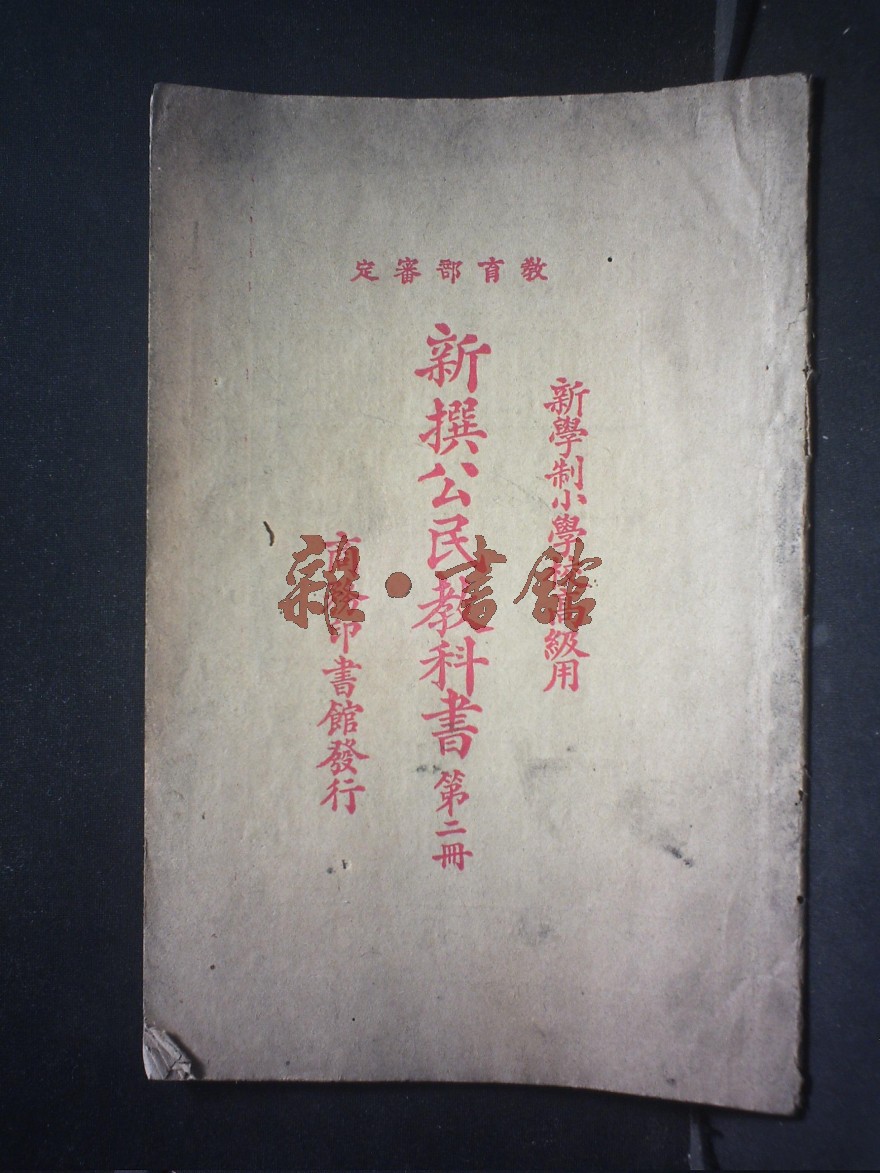 教育部審定
新學制小學校高級用
新撰公民教科書 第二冊
商務印書館發行
雜・書館